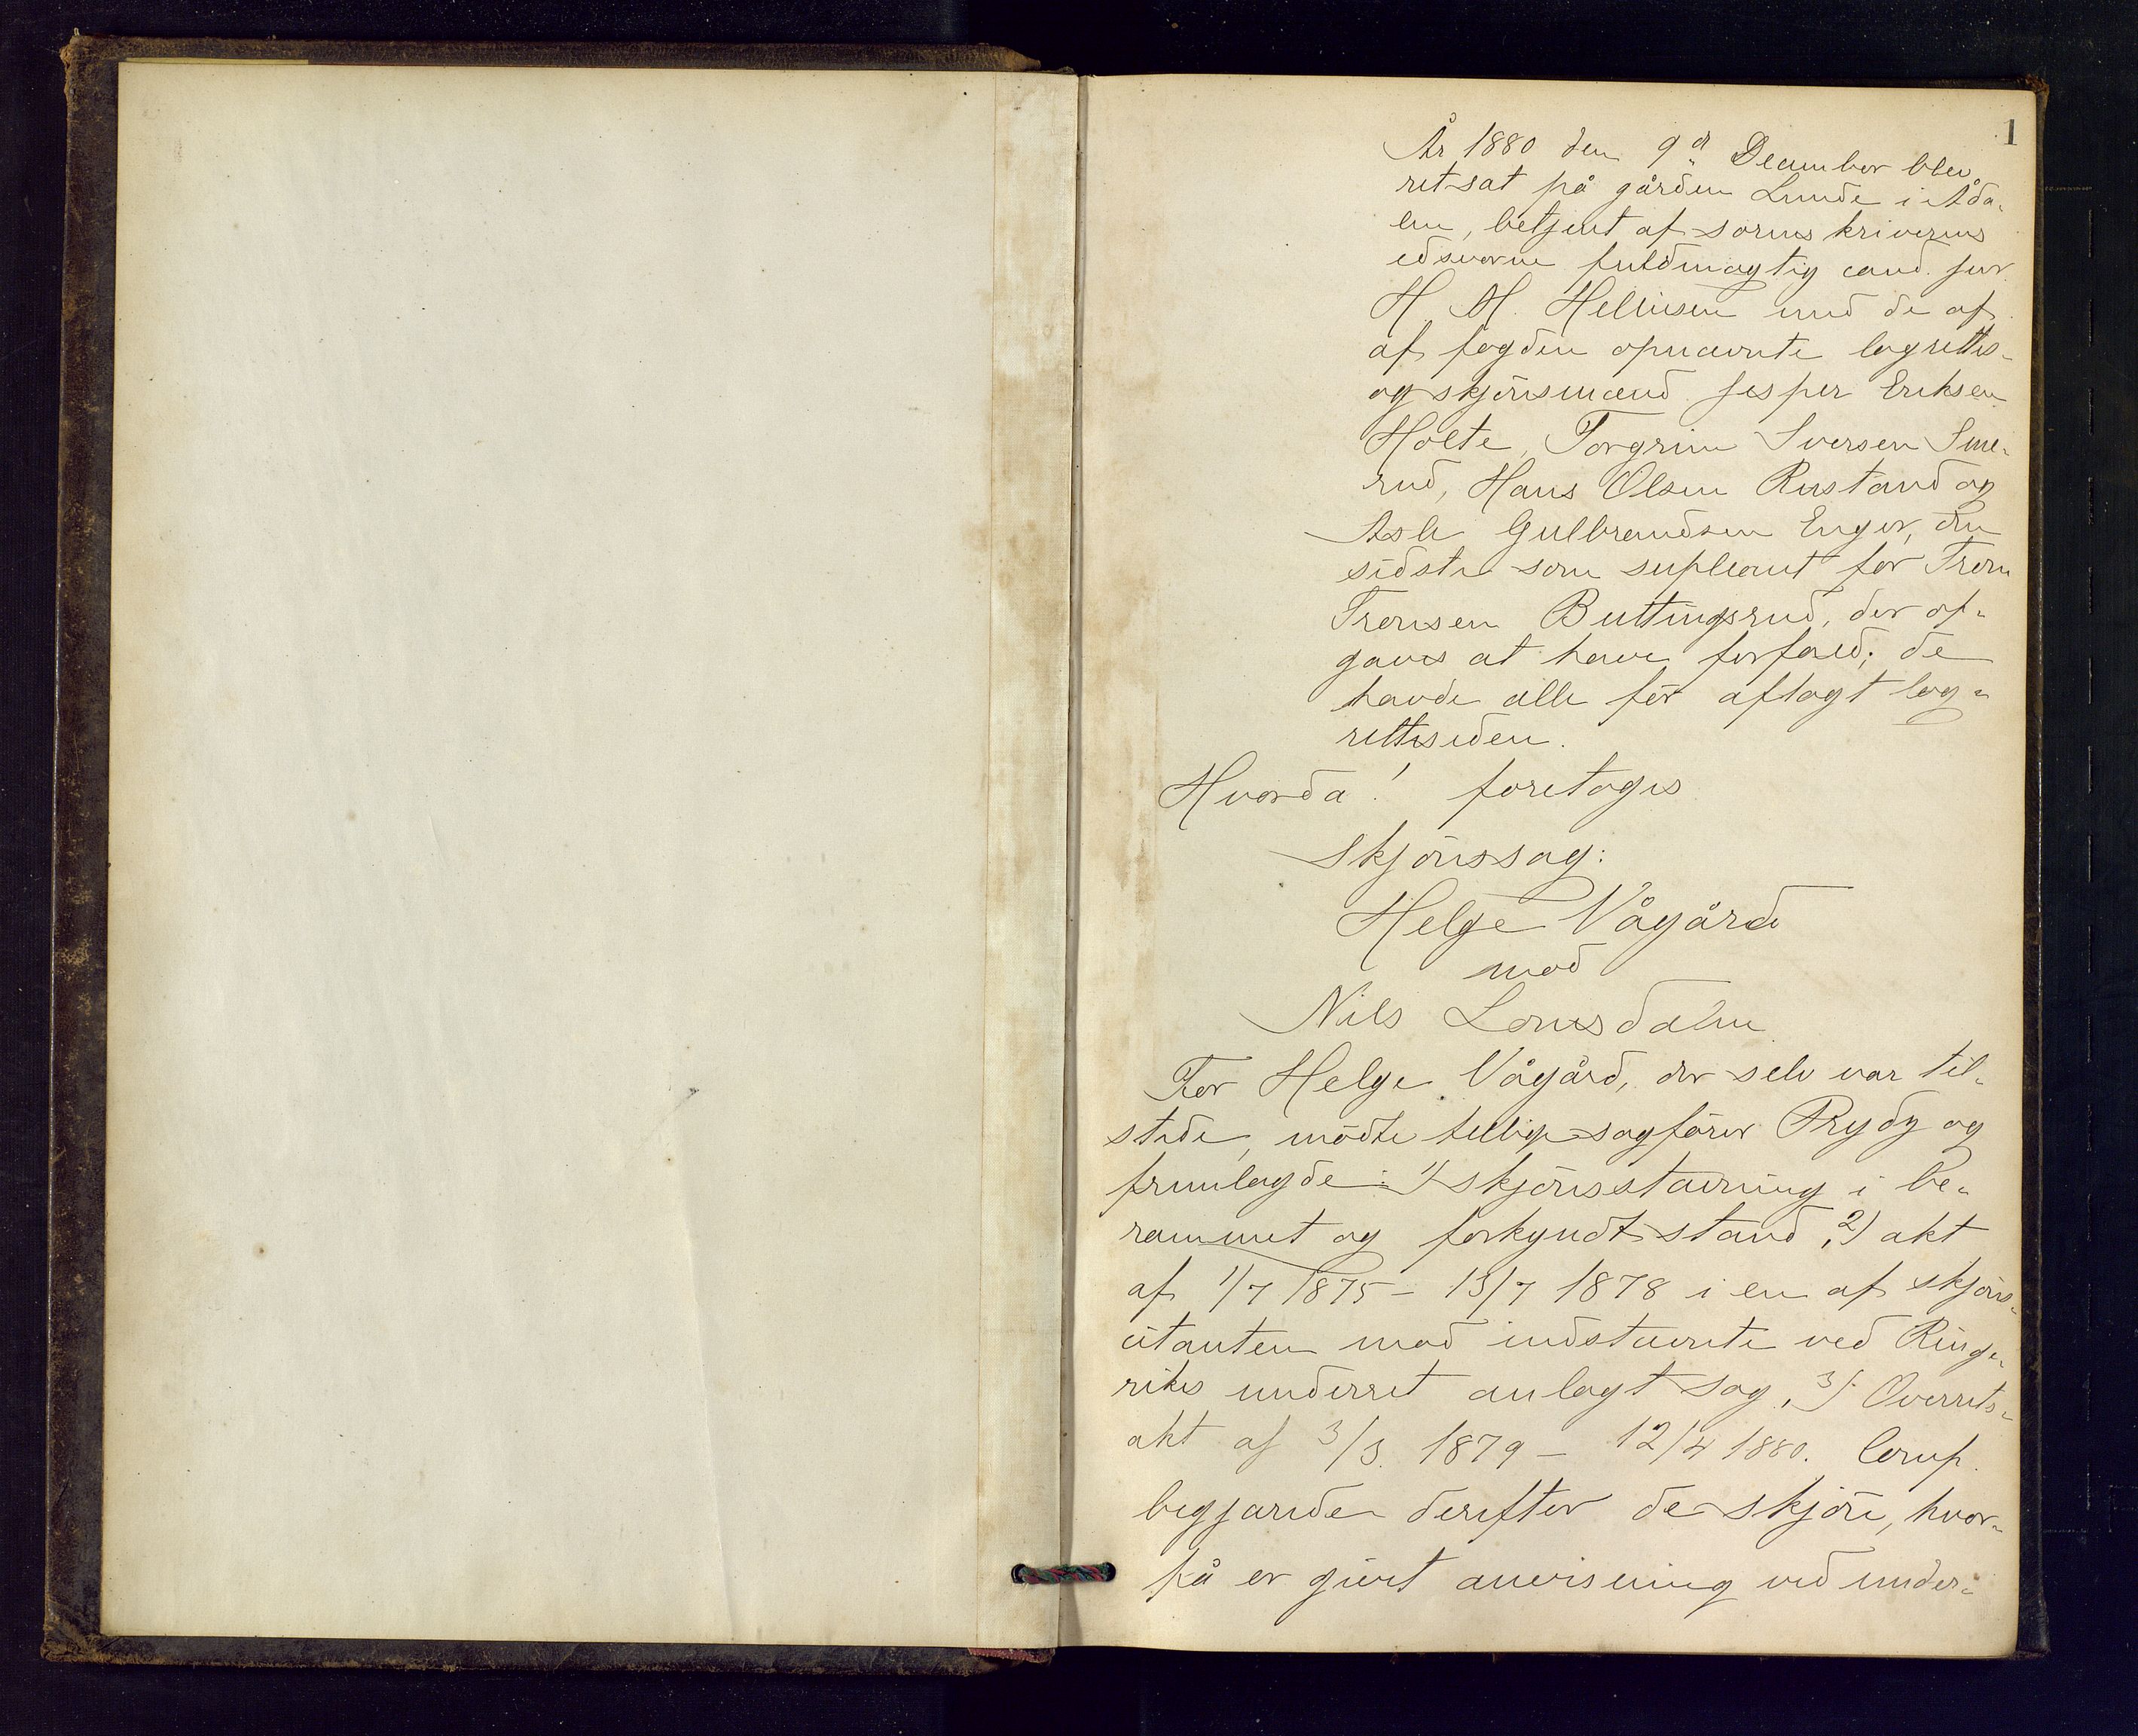 1
År 1880 den 9d December blev
ret sat på gården Lunde i Åda-
len, betjent af sorenskriverens
edsvorne fuldmægtig cand. jur.
H. M. Hellesen med de af
af fogden opnævnte lagrettes-
og skjönsmænd Jesper Eriksen
Holte, Torgrim Iversen Sme-
rud, Hans Olsen Rustand og
Asle Gulbrandsen Enger, den
sidste som supleant for Tron
Tronsen Buttingsrud, der op-
gaves at have forfald; de
havde alle för aflagt lag-
retteseden.
Hvorda! foretoges
skjönssag:
Helge Vågård
mod
Nils Lonsdalen
For Helge Vågård, der selv var til-
stede, mödte tillige sagförer Rydg og
fremlagde: 1) skjönsstævning i be-
rammet og forkyndt stand, 2) akt
af 1/7 1875 - 13/7 1878 i en af skjöns-
citanten mod indstævnte ved Ringe-
rikes underret anlagt sag, 3) Overrets-
akt af 3/3. 1879 - 12/4 1880. Comp.
begjærede derefter de skjön, hvor-
på er givet anvisning ved under-